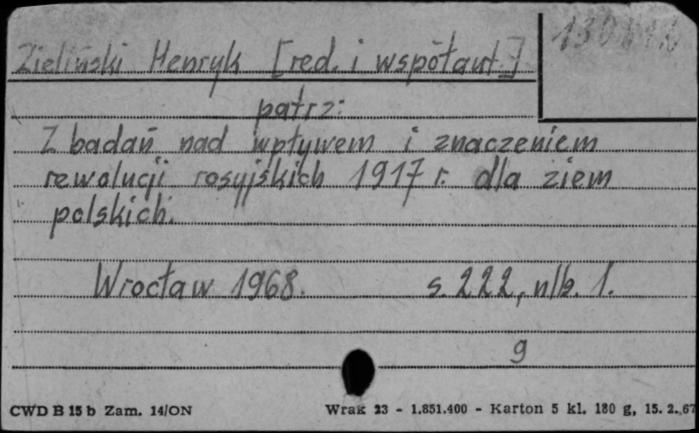 Zieliński Henryk [red. i współaut.]
patrz:
Z badań nad wpływem i znaczeniem
rewolucji rosyjskich 1917 r. dla ziem
polskich.
Wrocław 1968. s. 222, nlb. 1.
9
CWD B 15 b Zam. 14/ON Wrak 23 - 1.851.400 - Karton 5 kl. 180 g, 15. 2. 67